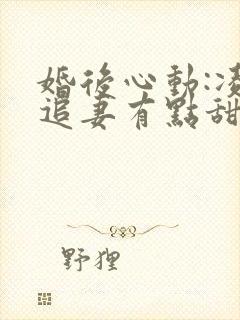 婚後心動:凌
追妻有點甜
野狸